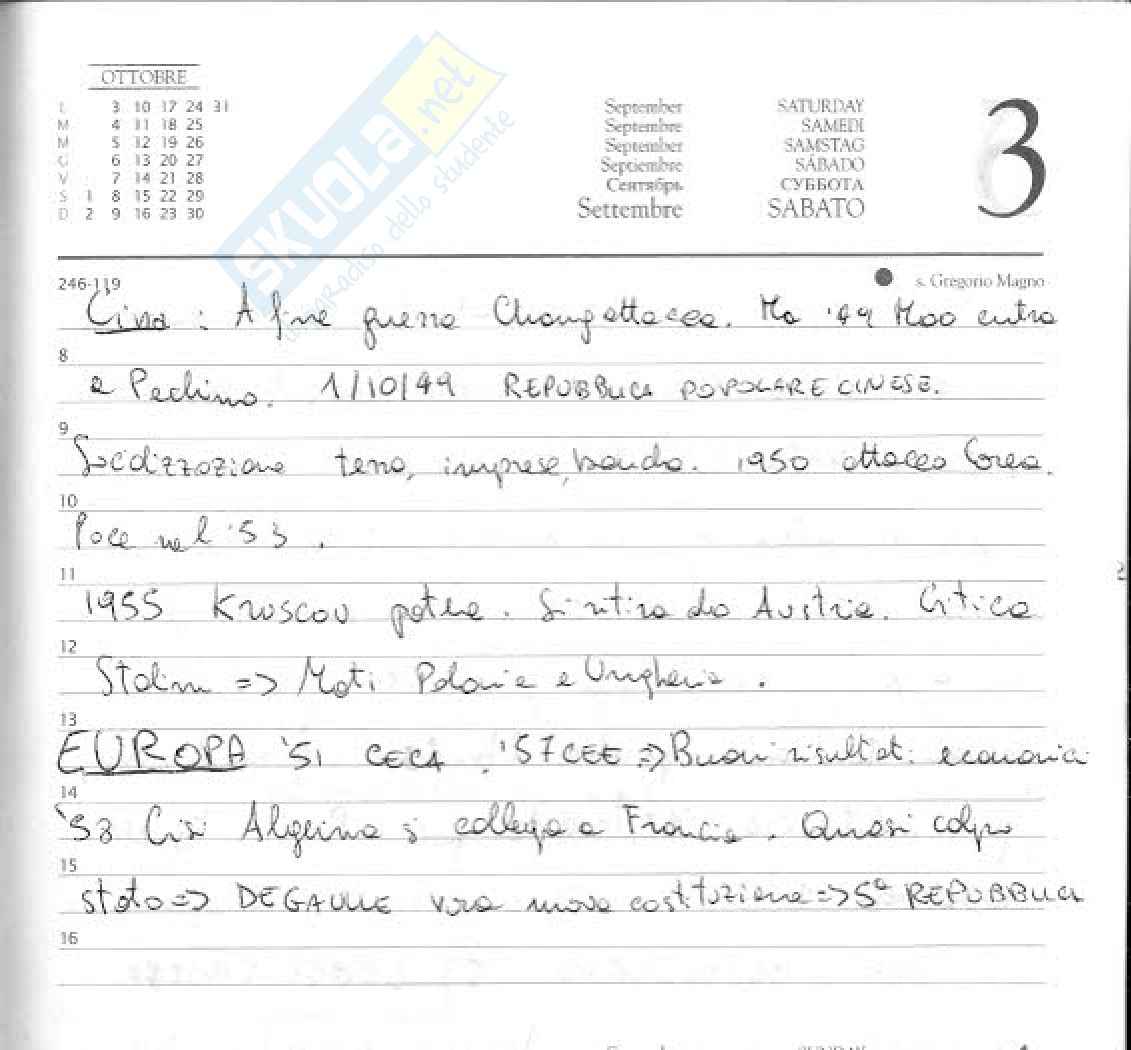 OTTOBRE
L 3 10 17 24 31
M 4 11 18 25
M 5 12 19 26
G 6 13 20 27
V 7 14 21 28
S 1 8 15 22 29
D 2 9 16 23 30
SKUOLA.net
il paradiso dello studente
September SATURDAY
Septembre SAMEDI
September SAMSTAG
Septiembre SÁBADO
Сентябрь СУББОТА
Settembre SABATO
3
246-119
s. Gregorio Magno
Cina : A fine guerra Chang attacca. Ma '49 Mao entra
8
a Pechino. 1/10/49 REPUBBLICA POPOLARE CINESE.
9
Socializzazione terra, imprese, banda. 1950 attacco Corea.
10
Pace nel '53.
11
1955 Kruscov potere. Si ritira da Austria. Critica
12
Stalin => Moti Polonia e Ungheria.
13
EUROPA '51 CECA. '57 CEE => Buoni risultati economici
14
Crisi Algerina si collega a Francia. Quasi colpo
15
stato => DE GAULLE vara nuova costituzione => 5ª REPUBBLICA
16